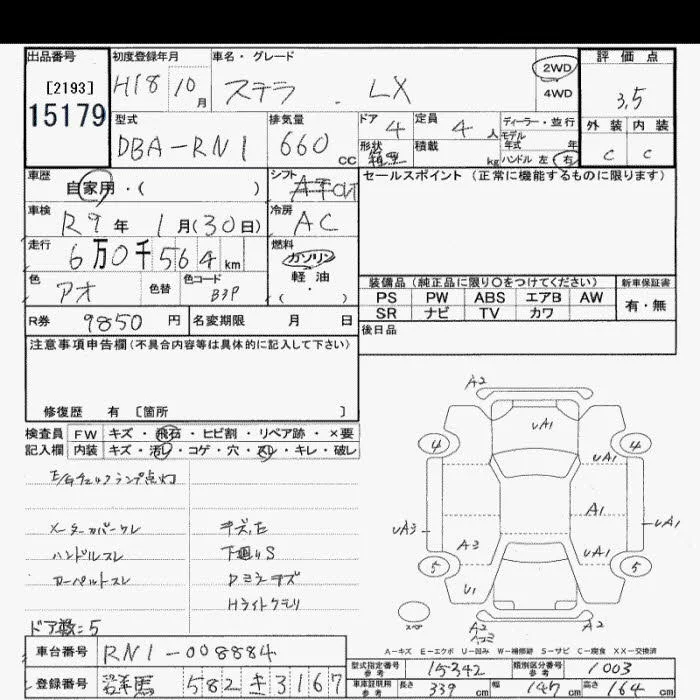 出品番号 初度登録年月 車名・グレード 評価点
[2193] H18 10月 ステラ . LX 2WD 4WD 3.5
15179
外装 内装
C C
型式 排気量 ドア 定員 ディーラー・並行
モデル
DBA-RN1 660 CC 4 4人 年式 年
形状 積載 kg ハンドル 左 右
車歴 シフト セールスポイント (正常に機能するものに限ります)
自家用・( )
車検 冷房
R9年 1月(30日) AC
走行 燃料
6万0千564km ガソリン
軽油
( ・ )
色 色替 色コード
アオ B3P
装備品 (純正品に限り○をつけてください) 新車保証書
PS PW ABS エアB AW 有・無
SR ナビ TV カワ
R券 9850円 名変期限 月 日 後日品
注意事項申告欄(不具合内容等は具体的に記入して下さい)
修復歴 有 〔箇所 〕
検査員 FW キズ・飛石・ヒビ割・リペア跡・×要
記入欄 内装 キズ・汚レ・コゲ・穴・スレ・キレ・破レ
E/Gチェックランプ点灯
メーターカバークレ キズ,E
ハンドルスレ 下廻りS
カーペットスレ Dミラーキズ
Hライトクモリ
ドア数:5
A2
UA1
4 4
UA1
UA3 A1 UA1
A3 UA1
5 5
U1
スペア A2 A2
A-キズ E-エクボ U-凹み W-補修跡 S-サビ C-腐食 XX-交換済
車台番号 RN1-008884
型式指定番号 参考 15342 類別区分番号 参考 1003
登録番号 群馬 582 き 3167
車体証明用 参考 長さ 339cm 幅 147cm 高さ 164cm